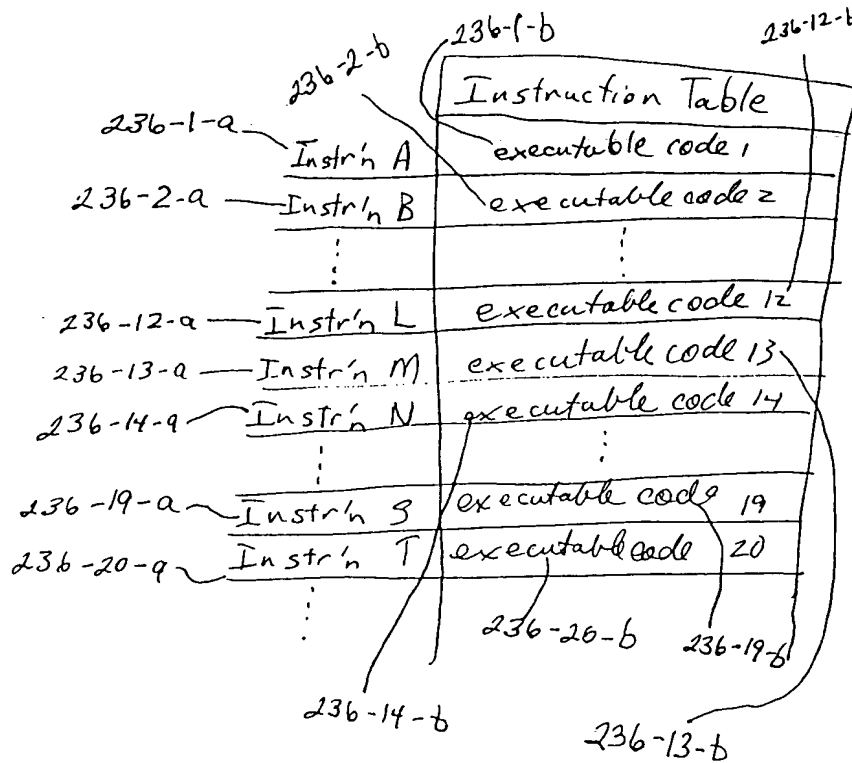 236-1-b
236-12-b
236-2-b
Instruction Table
236-1-a
Instr'n A executable code 1
236-2-a Instr'n B executable code 2
236-12-a Instr'n L executable code 12
236-13-a Instr'n M executable code 13
236-14-a Instr'n N executable code 14
236-19-a Instr'n S executable code 19
236-20-a Instr'n T executable code 20
236-20-b 236-19-b
236-14-b
236-13-b